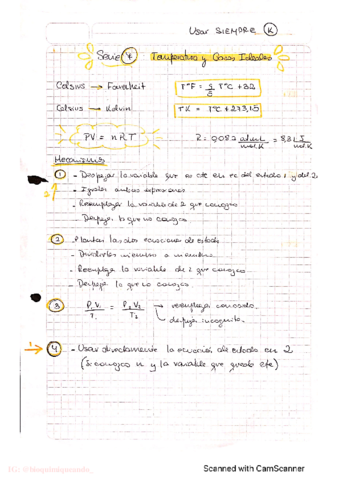 Usar SIEMPRE K
Serie 4 Temperatura y Gases Ideales
Celsius → Farenheit T°F = 9/5 T°C + 32
Celsius → Kelvin TK = T°C + 273,15
PV = nRT R = 0,082 atm.L/mol.K = 8,31 J/mol.K
Mecanismos
1 - Despejar la variable que es cte en ec del estado 1 y del 2.
- Igualar ambas expresiones
- Reemplazar la variable de 2 que conozco
- Despejo lo que no conozco
2 - Plantear las dos ecuaciones de estado
- Dividirlas miembro a miembro
- Reemplazo la variable de 2 que conozco
- Despejo lo que no conozco.
3 P1 V1 / T1 = P2 V2 / T2 → reemplazo conocido
→ despejo incognita
4 - Usar directamente la ecuación de estado en 2
(Si conozco n y la variable que quedó cte)
Scanned with CamScanner